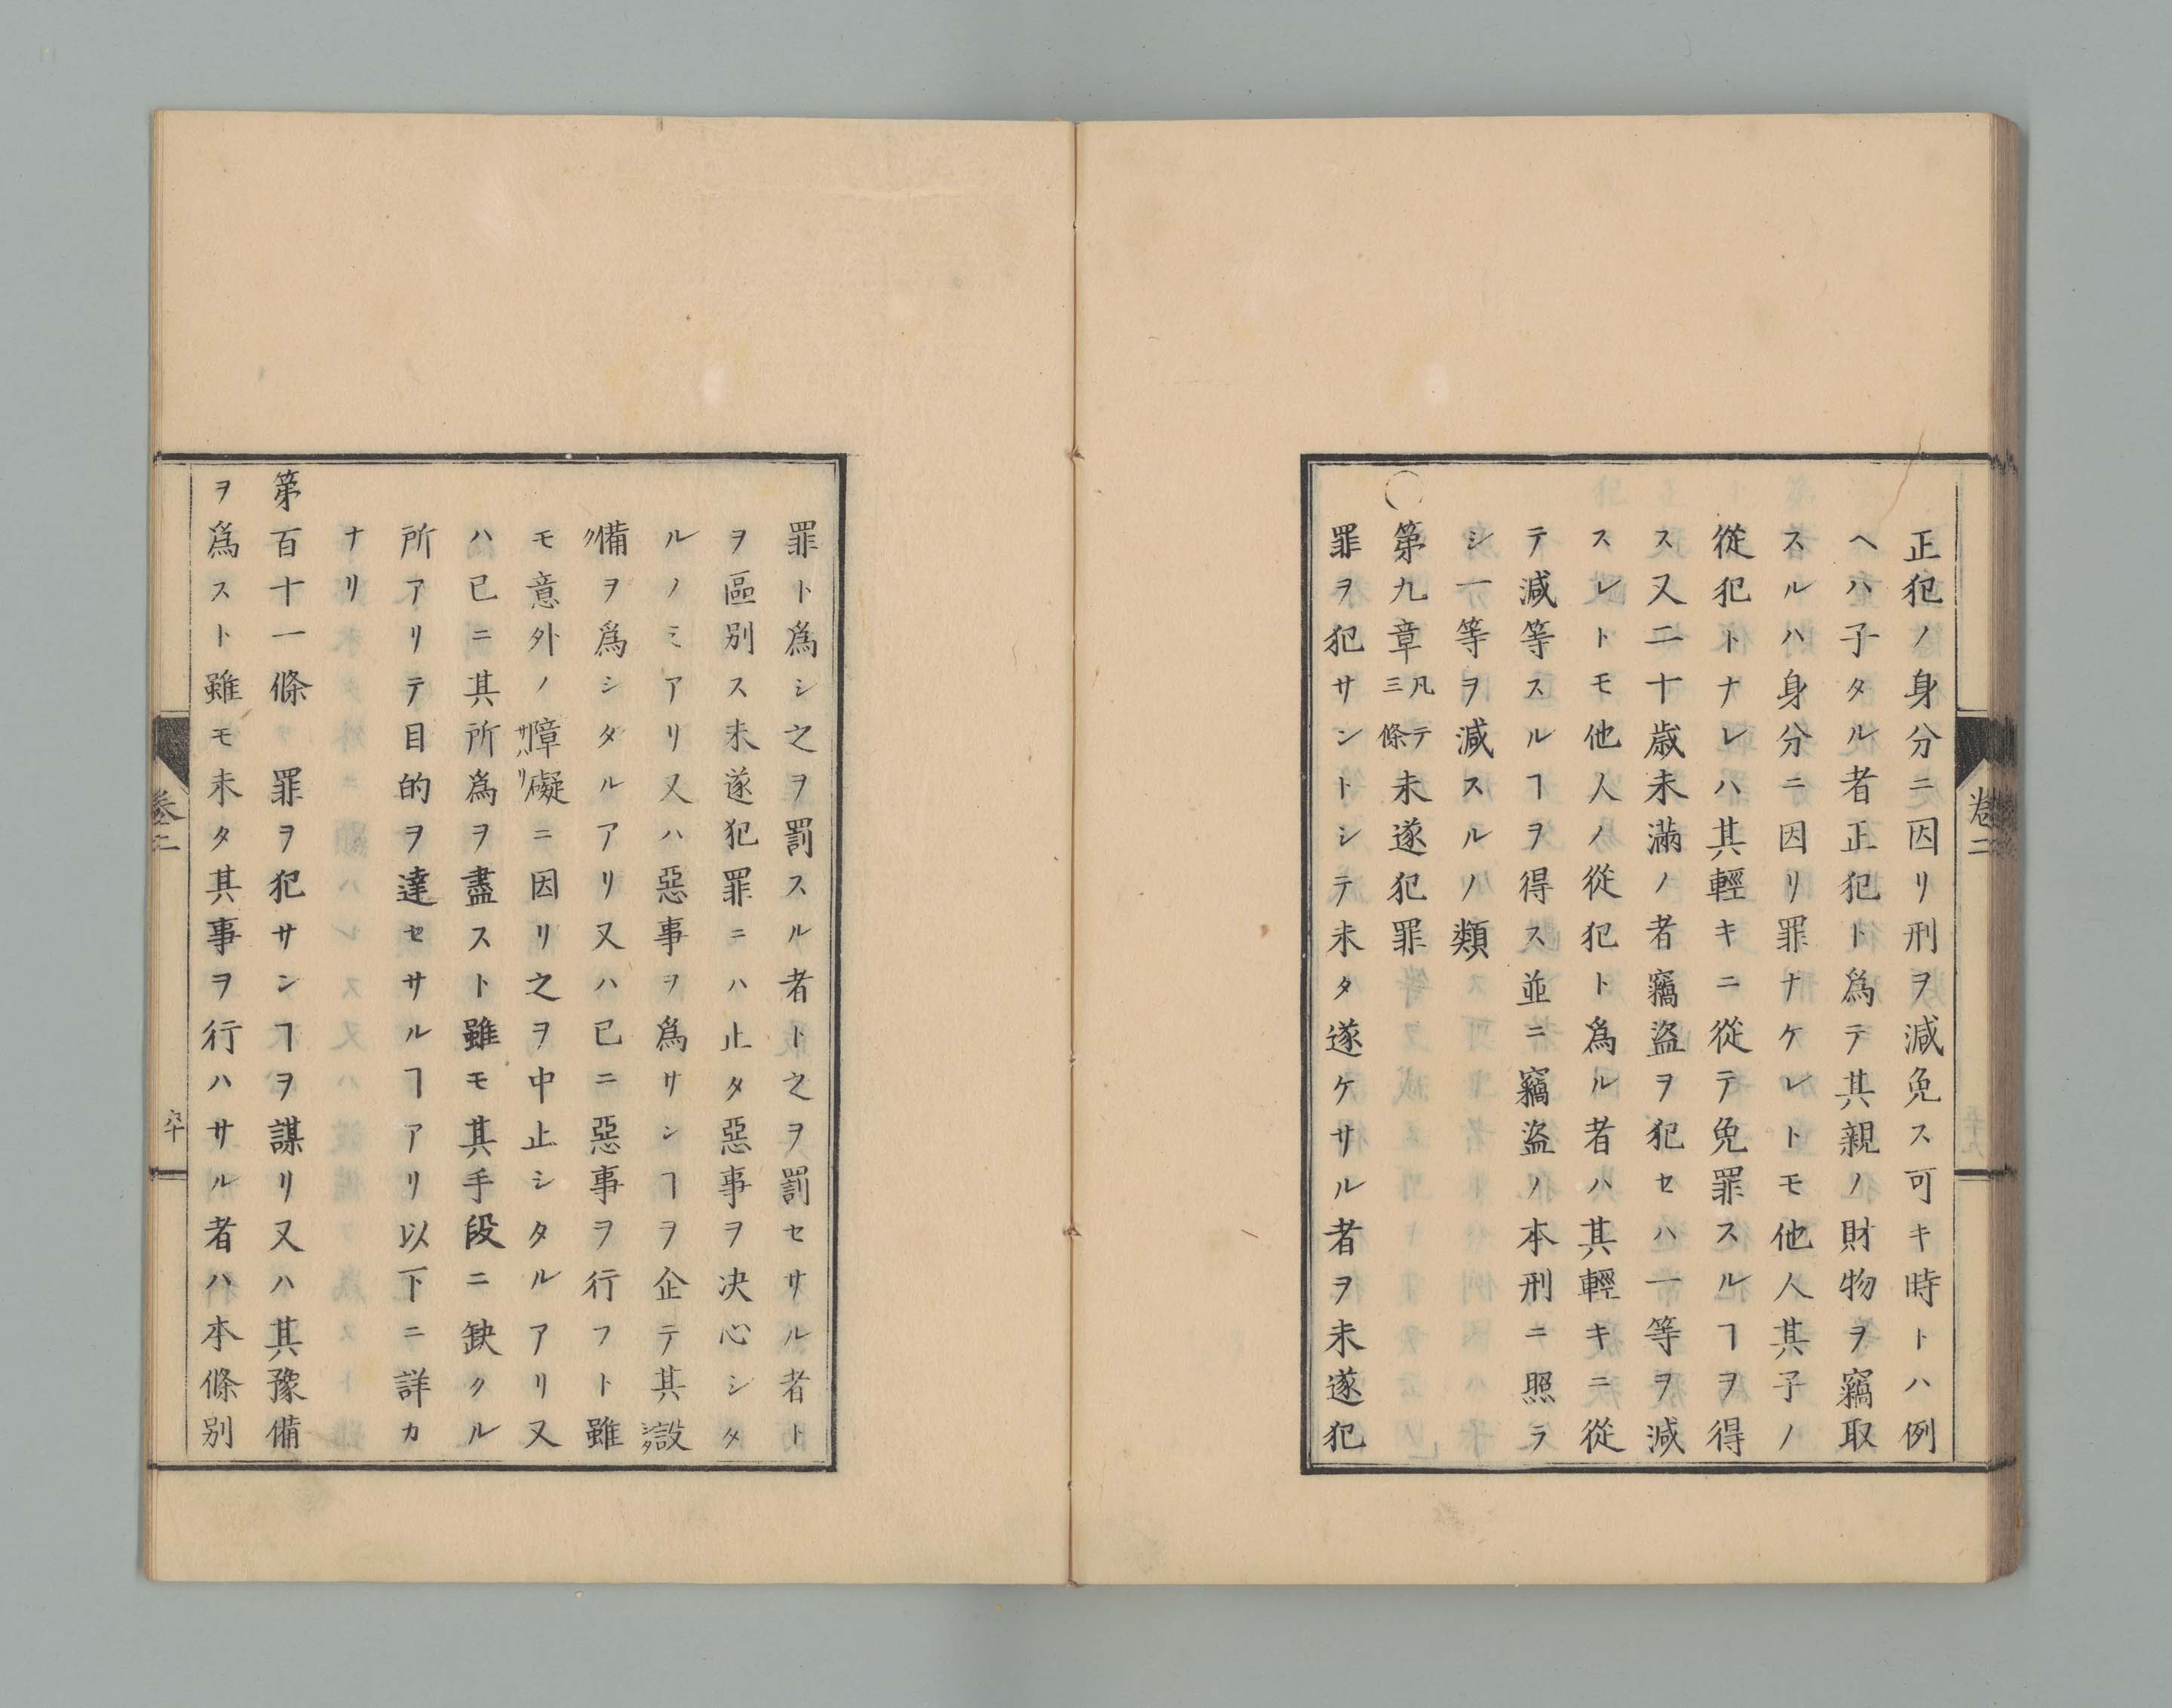 正犯ノ身分ニ因リ刑ヲ減免ス可キ時トハ例
ヘハ子タル者正犯ト為テ其親ノ財物ヲ竊取
スルハ身分ニ因リ罪ナケレトモ他人其子ノ
從犯トナレハ其輕キニ從テ免罪スルヿヲ得
ス又二十歳未滿ノ者竊盗ヲ犯セハ一等ヲ減
スレトモ他人ノ從犯ト為ル者ハ其輕キニ從
テ減等スルヿヲ得ス並ニ竊盗ノ本刑ニ照ラ
シ一等ヲ減スルノ類
○第九章 凡テ三條 未遂犯罪
罪ヲ犯サントシテ未タ遂ケサル者ヲ未遂犯
卷二
罪ト為シ之ヲ罰スル者ト之ヲ罰セサル者ト
ヲ區別ス未遂犯罪ニハ止タ惡事ヲ決心シタ
ルノミアリ又ハ惡事ヲ為サンヿヲ企テ其設
備ヲ為シタルアリ又ハ已ニ惡事ヲ行フト雖
モ意外ノ障礙ニ因リ之ヲ中止シタルアリ又
ハ已ニ其所為ヲ盡スト雖モ其手段ニ缺クル
所アリテ目的ヲ達セサルヿアリ以下ニ詳カ
ナリ
第百十一條 罪ヲ犯サンヿヲ謀リ又ハ其豫備
ヲ為スト雖モ未タ其事ヲ行ハサル者ハ本條別
卷二
六十